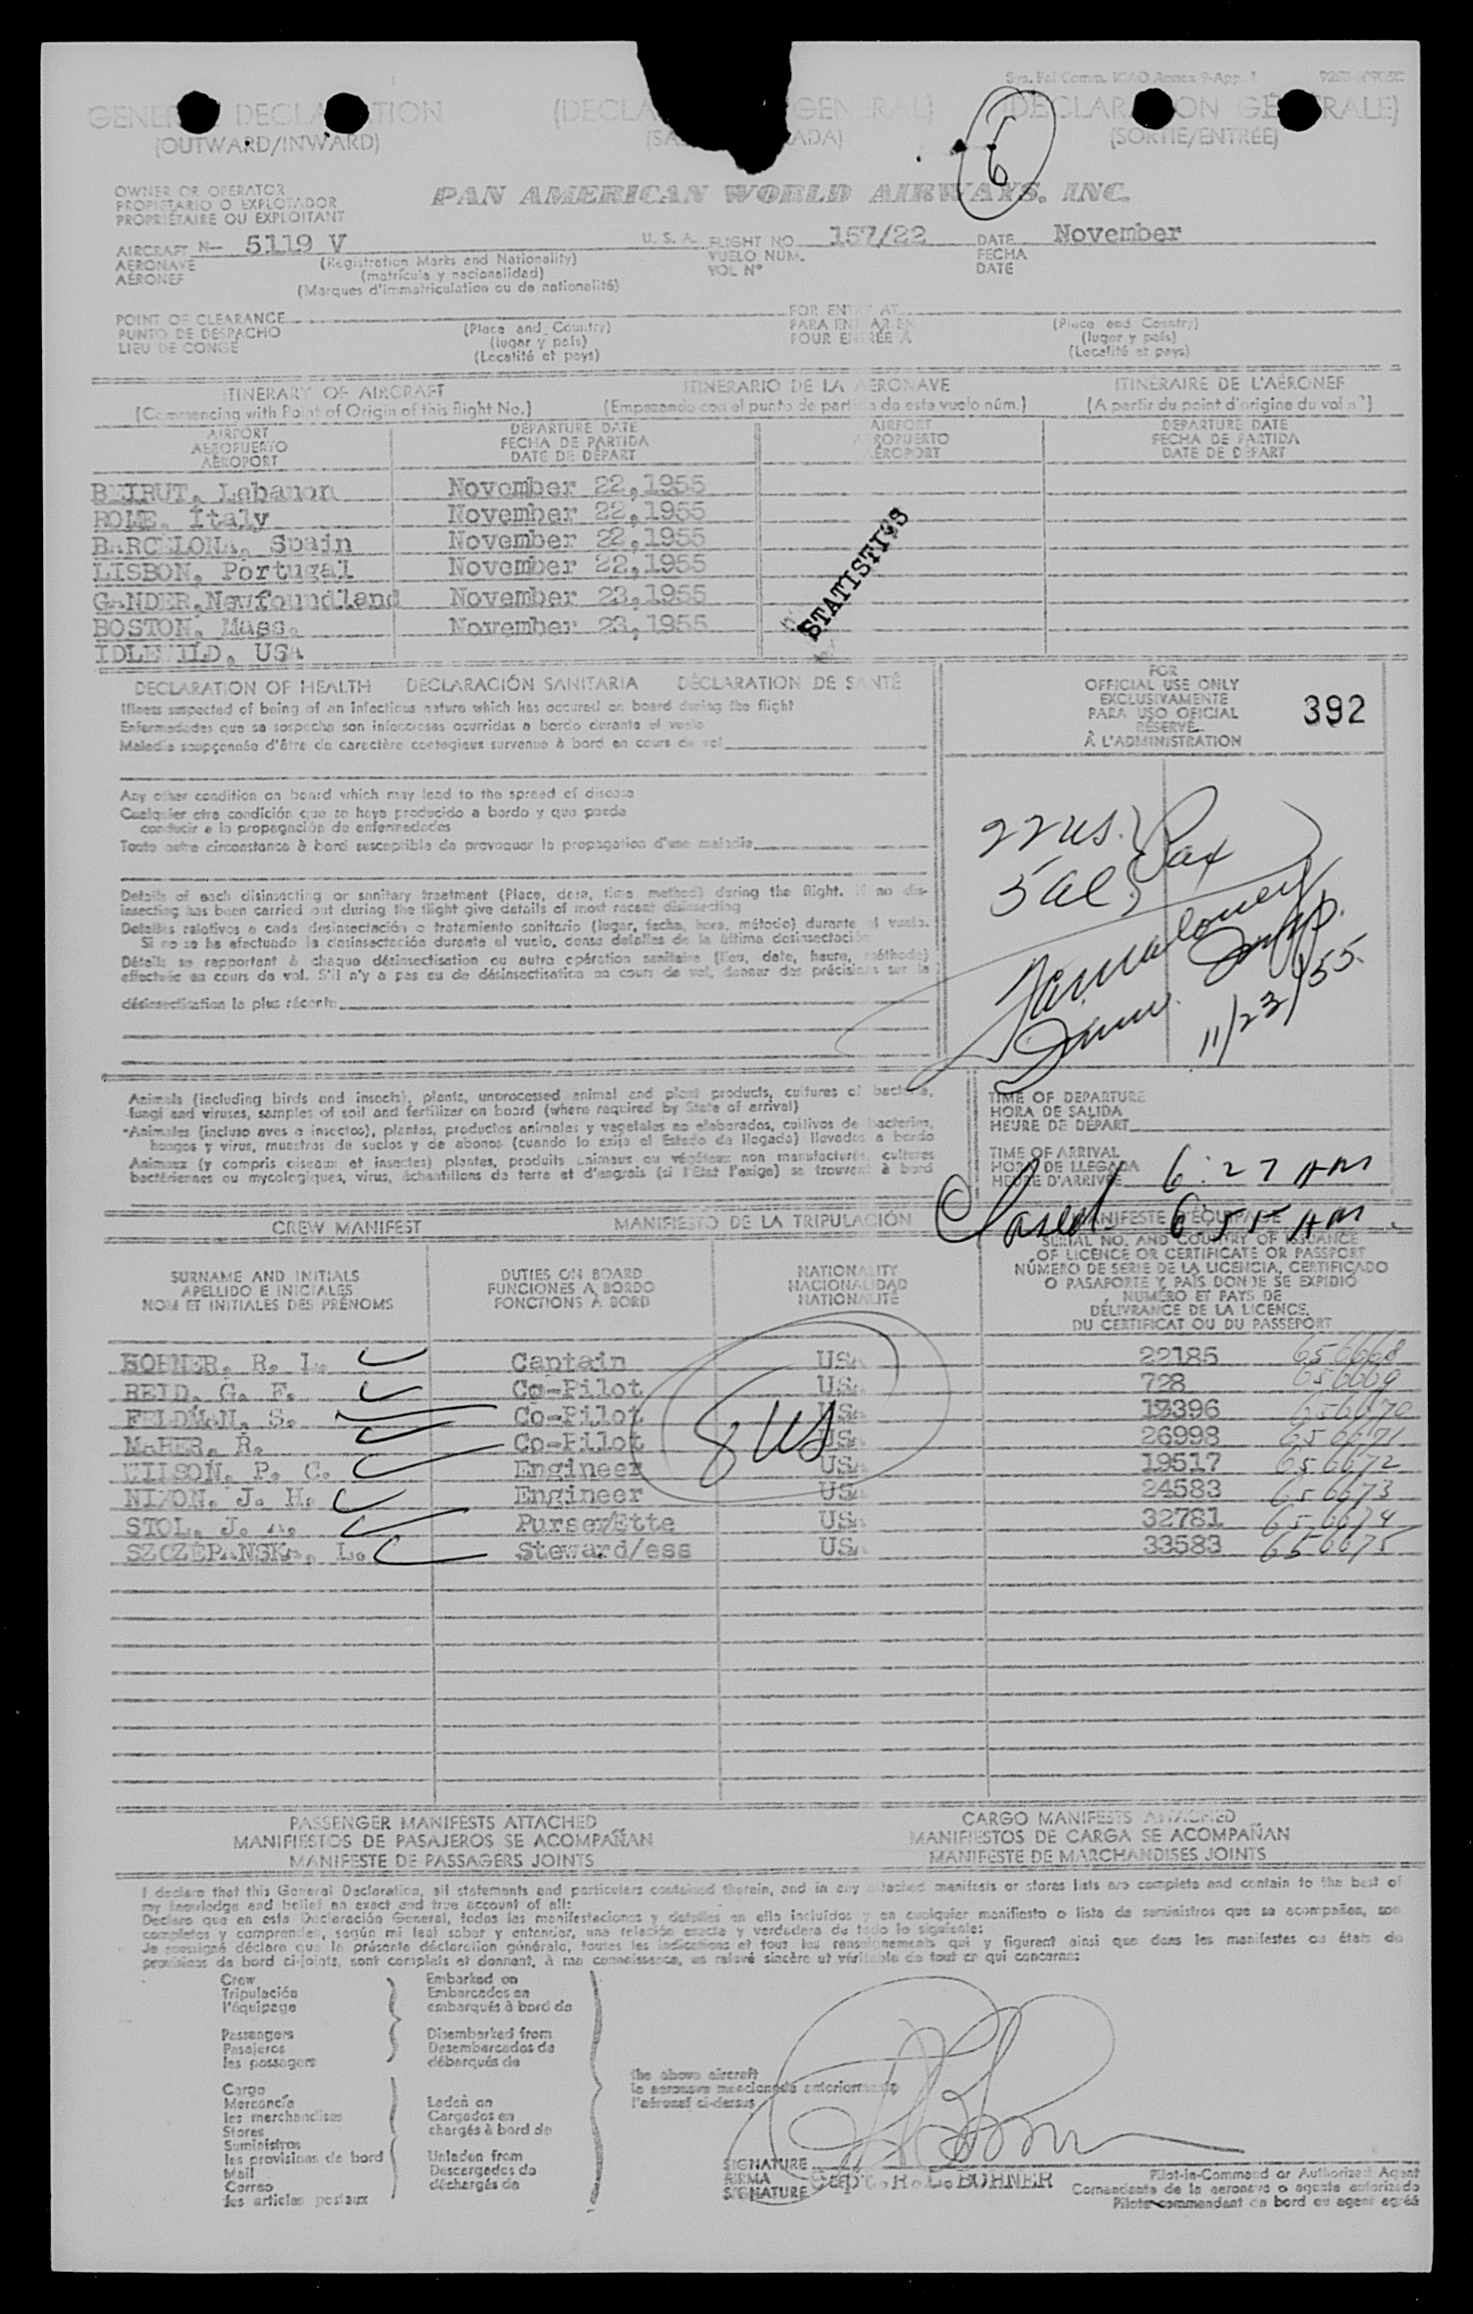 Sys. Fal Comm. ICAO Annex 9-App. 1
GENERAL DECLARATION
(OUTWARD/INWARD)
(DECLARACIÓN GENERAL)
(SALIDA/ENTRADA)
(DÉCLARATION GÉNÉRALE)
(SORTIE/ENTRÉE)
6
OWNER OR OPERATOR
PROPIETARIO O EXPLOTADOR
PROPRIÉTAIRE OU EXPLOITANT
PAN AMERICAN WORLD AIRWAYS, INC.
AIRCRAFT N- 5119 V U. S. A. FLIGHT NO. 157/22 DATE November
AERONAVE (Registration Marks and Nationality) VUELO NÚM. FECHA
AÉRONEF (matrícula y nacionalidad) VOL N° DATE
(Marques d'immatriculation ou de nationalité)
POINT OF CLEARANCE FOR ENTRY AT
PUNTO DE DESPACHO (Place and Country) PARA ENTRAR EN (Place and Country)
LIEU DE CONGÉ (lugar y país) POUR ENTRÉE À (lugar y país)
(Localité et pays) (Localité et pays)
ITINERARY OF AIRCRAFT ITINERARIO DE LA AERONAVE ITINÉRAIRE DE L'AÉRONEF
(Commencing with Point of Origin of this flight No.) (Empezando con el punto de partida de este vuelo núm.) (A partir du point d'origine du vol n°)
AIRPORT DEPARTURE DATE AIRPORT DEPARTURE DATE
AEROPUERTO FECHA DE PARTIDA AEROPUERTO FECHA DE PARTIDA
AÉROPORT DATE DE DÉPART AÉROPORT DATE DE DÉPART
BEIRUT, Lebanon November 22,1955
ROME, Italy November 22,1955
BARCELONA, Spain November 22,1955
LISBON, Portugal November 22,1955
GANDER,Newfoundland November 23,1955
BOSTON, Mass. November 23,1955
IDLEWILD, USA
STATISTICS
DECLARATION OF HEALTH DECLARACIÓN SANITARIA DÉCLARATION DE SANTÉ
Illness suspected of being of an infectious nature which has occured on board during the flight
Enfermedades que se sospecha son infecciosas ocurridas a bordo durante el vuelo
Maladie soupçonnée d'être de caractère contagieux survenue à bord en cours de vol
Any other condition on board which may lead to the spread of disease
Cualquier otra condición que se haya producido a bordo y que pueda
conducir a la propagación de enfermedades
Toute autre circonstance à bord susceptible de provoquer la propagation d'une maladie
Details of each disinsecting or sanitary treatment (Place, date, time method) during the flight. If no dis-
insecting has been carried out during the flight give details of most recent disinsecting
Detalles relativos a cada desinsectación o tratamiento sanitario (lugar, fecha, hora, método) durante el vuelo.
Si no se ha efectuado la desinsectación durante el vuelo, dense detalles de la última desinsectación
Détails se rapportant à chaque désinsectisation ou autre opération sanitaire (lieu, date, heure, méthode)
effectuée au cours de vol. S'il n'y a pas eu de désinsectisation au cours de vol, donner des précisions sur la
désinsectisation la plus récente
FOR
OFFICIAL USE ONLY
EXCLUSIVAMENTE
PARA USO OFICIAL
RÉSERVÉ
À L'ADMINISTRATION
392
22 US.
5 Al. Pax
11/23/55
Animals (including birds and insects), plants, unprocessed animal and plant products, cultures of bacteria,
fungi and viruses, samples of soil and fertilizer on board (where required by State of arrival)
Animales (incluso aves e insectos), plantas, productos animales y vegetales no elaborados, cultivos de bacterias,
hongos y virus, muestras de suelos y de abonos (cuando lo exija el Estado de llegada) llevados a bordo
Animaux (y compris oiseaux et insectes) plantes, produits animaux ou végétaux non manufacturés, cultures
bactériennes ou mycologiques, virus, échantillons de terre et d'engrais (si l'État l'exige) se trouvent à bord
TIME OF DEPARTURE
HORA DE SALIDA
HEURE DE DÉPART
TIME OF ARRIVAL
HORA DE LLEGADA 6:27 AM
HEURE D'ARRIVÉE
Closed 6 55 AM
CREW MANIFEST MANIFIESTO DE LA TRIPULACIÓN MANIFESTE D'ÉQUIPAGE
SURNAME AND INITIALS
APELLIDO E INICIALES
NOM ET INITIALES DES PRÉNOMS
DUTIES ON BOARD
FUNCIONES A BORDO
FONCTIONS À BORD
NATIONALITY
NACIONALIDAD
NATIONALITÉ
SERIAL NO. AND COUNTRY OF ISSUANCE
OF LICENCE OR CERTIFICATE OR PASSPORT
NÚMERO DE SERIE DE LA LICENCIA, CERTIFICADO
O PASAPORTE Y PAÍS DONDE SE EXPIDIÓ
NUMÉRO ET PAYS DE
DÉLIVRANCE DE LA LICENCE,
DU CERTIFICAT OU DU PASSEPORT
BOHNER, R. L. Captain USA 22185 656668
REID, G. F. Co-Pilot USA 728 656669
FELDMAN, S. Co-Pilot USA 17396 656670
MAHER, R. Co-Pilot USA 26998 656671
WILSON, P. C. Engineer USA 19517 656672
NIXON, J. H. Engineer USA 24583 656673
STOL, J. A. Purser/Ette USA 32781 656674
SZCZEPANSKA, L. Steward/ess USA 33583 656675
8 US
PASSENGER MANIFESTS ATTACHED CARGO MANIFESTS ATTACHED
MANIFIESTOS DE PASAJEROS SE ACOMPAÑAN MANIFIESTOS DE CARGA SE ACOMPAÑAN
MANIFESTE DE PASSAGERS JOINTS MANIFESTE DE MARCHANDISES JOINTS
I declare that this General Declaration, all statements and particulars contained therein, and in any attached manifests or stores lists are complete and contain to the best of
my knowledge and belief an exact and true account of all:
Declaro que en esta Declaración General, todas las manifestaciones y detalles en ella incluidos y en cualquier manifiesto o lista de suministros que se acompañen, son
completos y comprenden, según mi leal saber y entender, una relación exacta y verdadera de todo lo siguiente:
Je soussigné déclare que la présente déclaration générale, toutes les indications et tout les renseignements qui y figurent ainsi que dans les manifestes ou états de
provisions de bord ci-joints, sont complets et donnent, à ma connaissance, un relevé sincère et véritable de tout ce qui concerne:
Crew Embarked on
Tripulación Embarcados en
l'équipage embarqués à bord de
Passengers Disembarked from
Pasajeros Desembarcados de
les passagers débarqués de
the above aircraft
la aeronave mencionada anteriormente
l'aéronef ci-dessus
Cargo
Mercancía Laden on
les marchandises Cargados en
Stores chargés à bord de
Suministros
les provisions de bord Unladen from
Mail Descargados de
Correo déchargés de
les articles postaux
SIGNATURE
FIRMA Capt. R. L. BOHNER
SIGNATURE
Pilot-in-Command or Authorized Agent
Comandante de la aeronave o agente autorizado
Pilote commandant de bord ou agent agréé